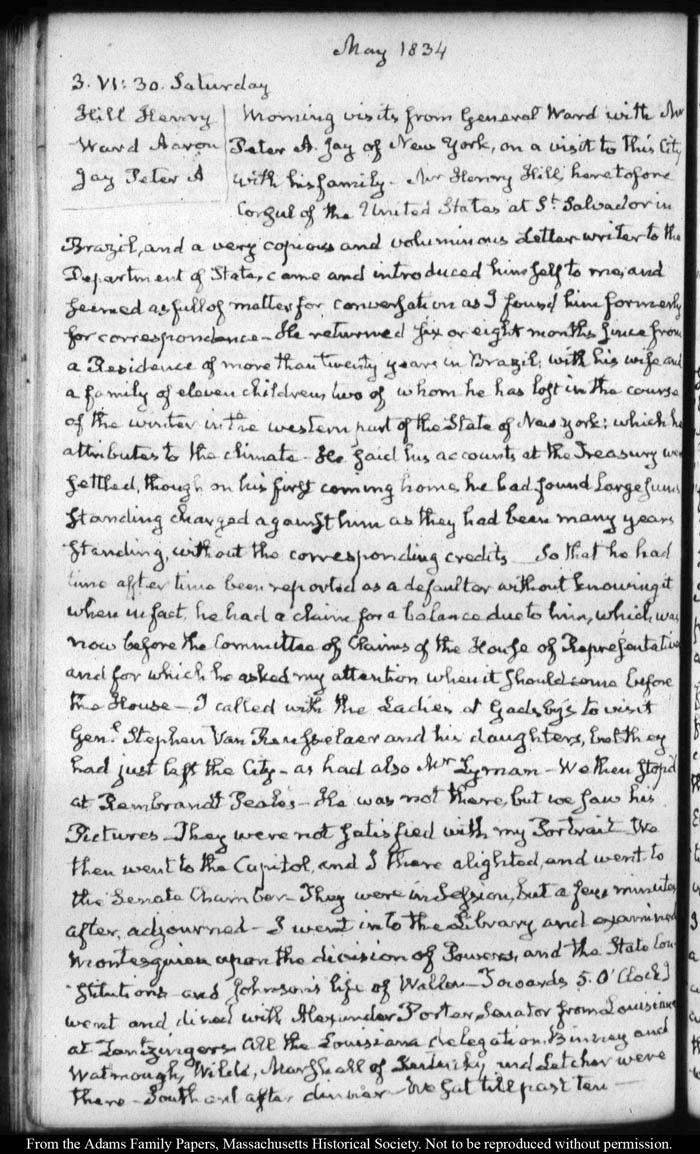 May 1834
3. VI: 30. Saturday
Hill Henry
Ward Aaron
Jay Peter A
Morning visits from General Ward with Mr
Peter A. Jay of New York, on a visit to this City
with his family. Mr Henry Hill, heretofore
Consul of the United States at St. Salvador in
Brazil, and a very copious and voluminous Letter writer to the
Department of State, came and introduced himself to me, and
seemed as full of matter for conversation as I found him formerly
for correspondence - He returned six or eight months since from
a Residence of more than twenty years in Brazil; with his wife and
a family of eleven children; two of whom he has lost in the course
of the winter in the western part of the State of New York; which he
attributes to the climate - He said his accounts at the Treasury were
settled, though on his first coming home, he had found large sums
standing charged against him as they had been many years
standing, without the corresponding credits - So that he had
time after time been reported as a defaulter without knowing it
when in fact, he had a claim for a balance due to him, which was
now before the Committee of Claims of the House of Representatives
and for which he asked my attention when it should come before
the House - I called with the Ladies at Gadsby's to visit
Genl. Stephen Van Rensselaer and his daughters, but they
had just left the City - as had also Mr Lyman - We then stop'd
at Rembrandt Peale's - He was not there, but we saw his
Pictures - They were not satisfied with my Portrait - We
then went to the Capitol, and I there alighted, and went to
the Senate Chamber - They were in Session, but a few minutes
after, adjourned - I went into the Library and examined
Montesquieu upon the division of Powers, and the State Con-
stitutions and Johnson's life of Waller - Towards 5. O'Clock I
went and dined with Alexander Porter, Senator from Louisiana
at All the Louisiana delegation, Binney and
Watmough, Wilde, Marshall of Kentucky, and Letcher were
there - Southard after dinner - We sat till past ten -
From the Adams Family Papers, Massachusetts Historical Society. Not to be reproduced without permission.